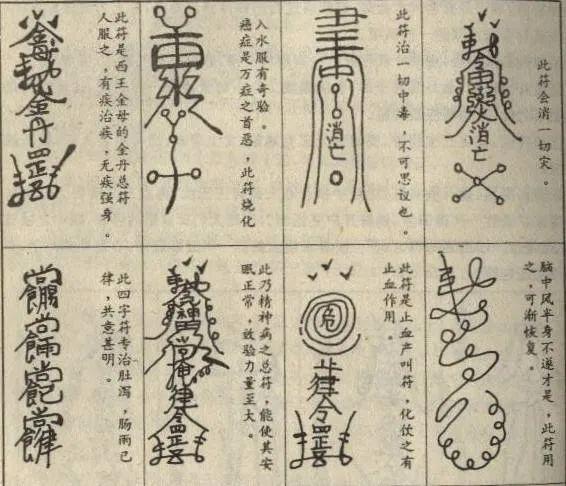 此符会消一切灾。
消亡
此符治一切中毒，不可思议也。
消亡
癌症是万症之首恶，此符烧化
入水服有奇验。
此符是西王金母的金丹总符
人服之，有疾治疾，无疾强身。
金丹罡
脑中风半身不遂才是，此符用
之，可渐恢复。
此符是止血产叫符，化饮之有
止血作用。
危
律令罡
此乃精神病之总符，能使其安
眼正常，效验力量至大。
律令罡
此四字符专治肚泻，肠雨已
律，共意甚明。